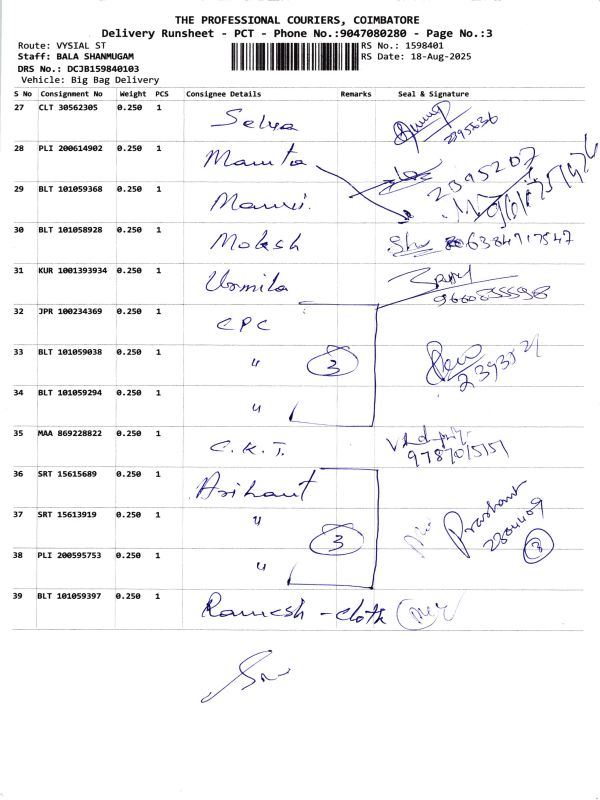 THE PROFESSIONAL COURIERS, COIMBATORE
Delivery Runsheet - PCT - Phone No.:9047080280 - Page No.:3
Route: VYSIAL ST
RS No.: 1598401
Staff: BALA SHANMUGAM
RS Date: 18-Aug-2025
DRS No.: DCJB159840103
Vehicle: Big Bag Delivery
S No Consignment No Weight PCS Consignee Details Remarks Seal & Signature
27 CLT 30562305 0.250 1 Selva
28 PLI 200614902 0.250 1 Mamta 2395207
29 BLT 101059368 0.250 1
30 BLT 101058928 0.250 1 Moksh 6384717547
31 KUR 1001393934 0.250 1 Urmila
32 JPR 100234369 0.250 1 CPC
33 BLT 101059038 0.250 1 " 3
34 BLT 101059294 0.250 1 "
35 MAA 869228822 0.250 1 C.K.T.
9787015151
36 SRT 15615689 0.250 1 Arihant
37 SRT 15613919 0.250 1 " 3 Prashant
38 PLI 200595753 0.250 1 " 3
39 BLT 101059397 0.250 1 Ramesh - cloth